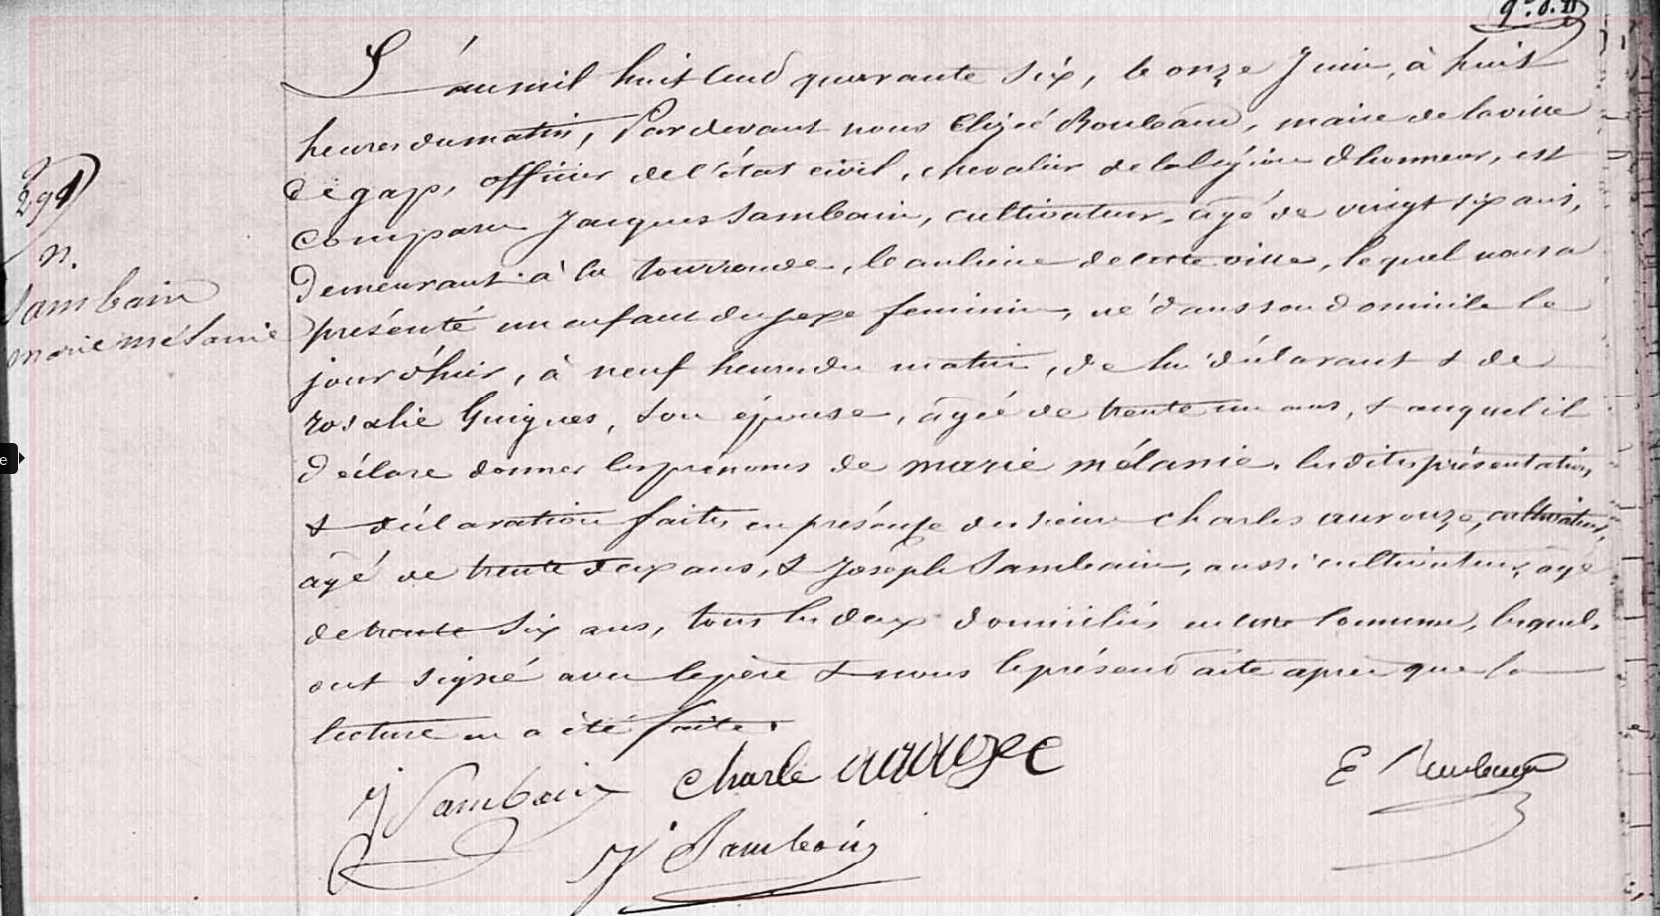 L'an mil huit cent quarante six, le onze Juin, à huit
heures du matin, Pardevant nous Elizeé Roubaud, maire de la ville
de gap, officier de l'état civil, chevalier de la légion d'honneur, est
comparu Jacques Sambain, cultivateur, agé de vingt six ans,
Demeurant à la tourronde, banlieue de cette ville, lequel nous a
présenté un enfant du sexe feminin, né dans son domicile le
jour d'hier, à neuf heures du matin, de lui déclarant & de
rosalie Guigues, son épouse, âgée de trente un ans, & auquel il
Déclare donner les prenoms de marie mélanie. les dites présentation
& déclaration faites en présence des sieurs charles aurouze, cultivateur,
âgé de trente deux ans, & Joseph Sambain, aussi cultivateur, agé
de trente six ans, tous les deux domiciliés en cette commune, lesquels
ont signé avec le père & nous le présent acte après que la
lecture en a été faite.
291
n.
Sambain
marie mélanie
J Sambain charle aurouze E Roubaud
J Sambain